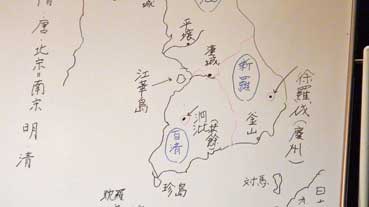 隋 唐 北京=南京 明 清
平壌
漢城
江華島
新羅
徐羅伐(慶州)
釜山
泗沘
扶餘
百済
珍島
対馬
耽羅
城